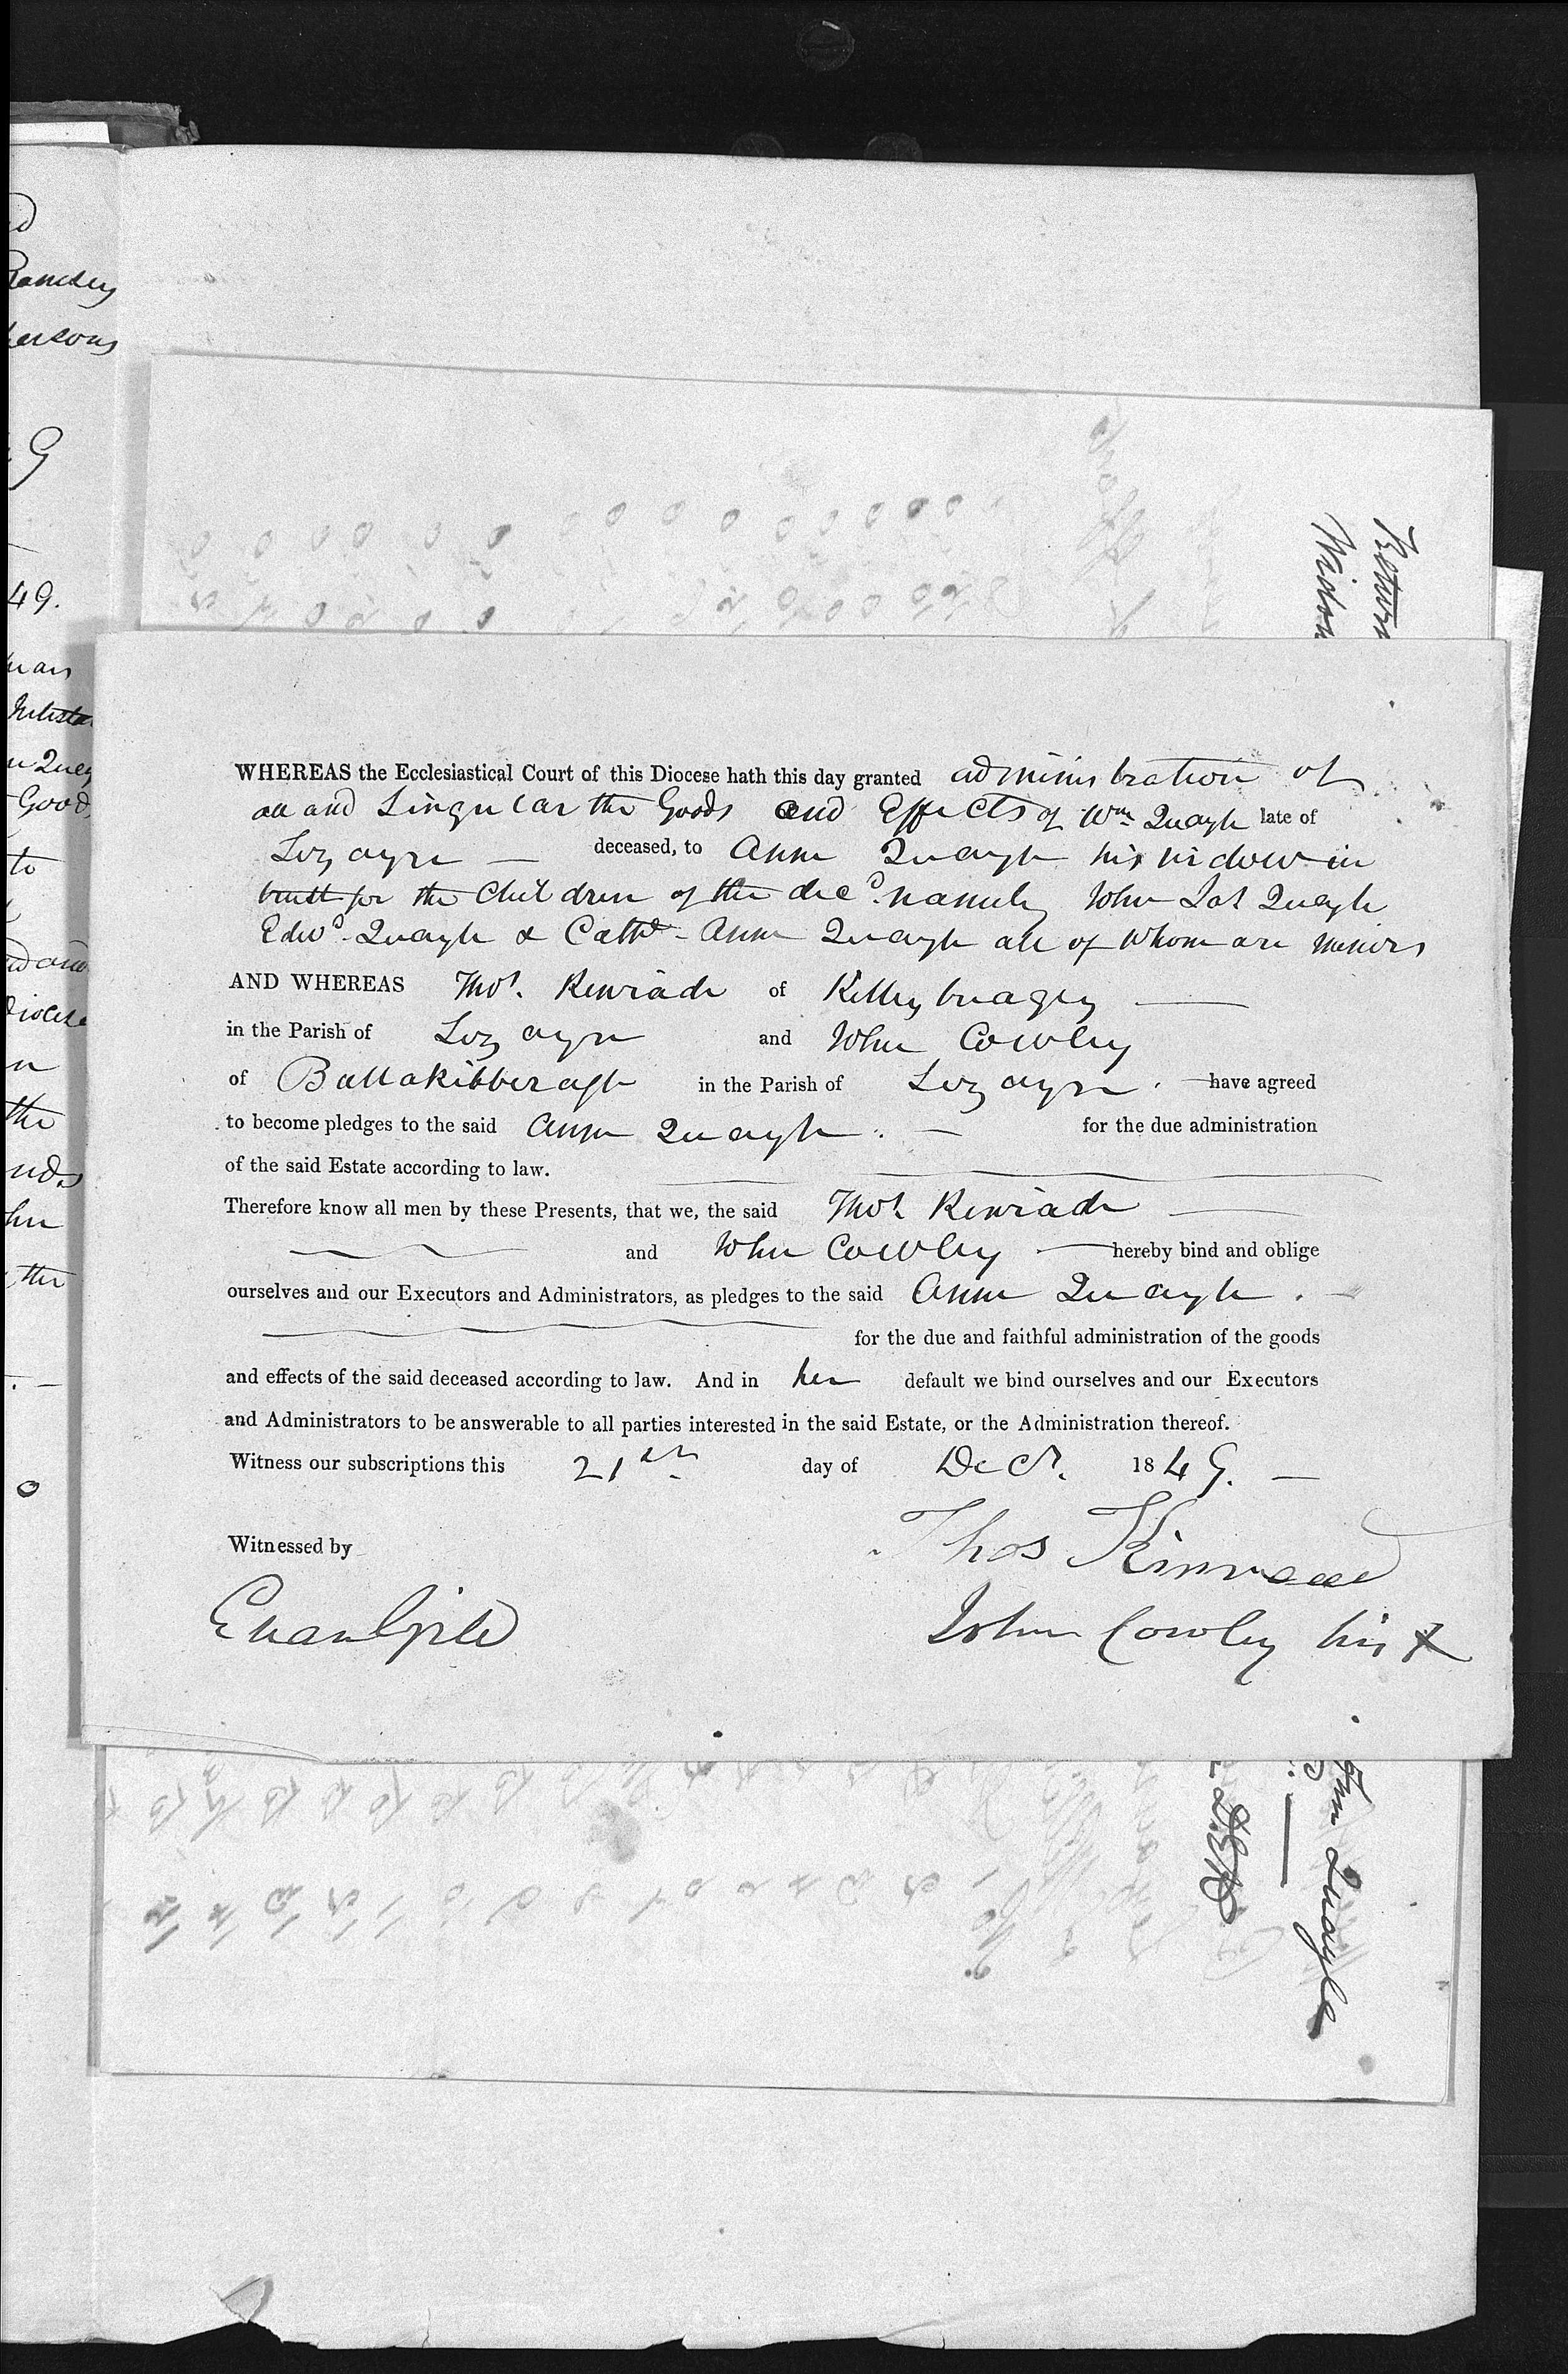 d
Ramsey
persons
G
49.
Intesta
Good
to
Diocese
the
the
Return
WHEREAS the Ecclesiastical Court of this Diocese hath this day granted administration of
all and Singular the Goods and Effects of Wm Quayle late of
Lezayre — deceased, to Anne Quayle his widow in
trust for the Children of the decd. namely John Jas Quayle
Edwd. Quayle & Cathe. Anne Quayle all of whom are minors
AND WHEREAS Thos. Kinrade of
in the Parish of Lezayre and John Cowley
of Ballakibberagh in the Parish of Lezayre. — have agreed
to become pledges to the said Anne Quayle. — for the due administration
of the said Estate according to law.
Therefore know all men by these Presents, that we, the said Thos. Kinrade —
and John Cowley — hereby bind and oblige
ourselves and our Executors and Administrators, as pledges to the said Anne Quayle. —
for the due and faithful administration of the goods
and effects of the said deceased according to law. And in her default we bind ourselves and our Executors
and Administrators to be answerable to all parties interested in the said Estate, or the Administration thereof.
Witness our subscriptions this 21st day of Decr. 1849. —
Witnessed by
Thos Kinrade
Evan Gill
John Cowley his X
Quayle